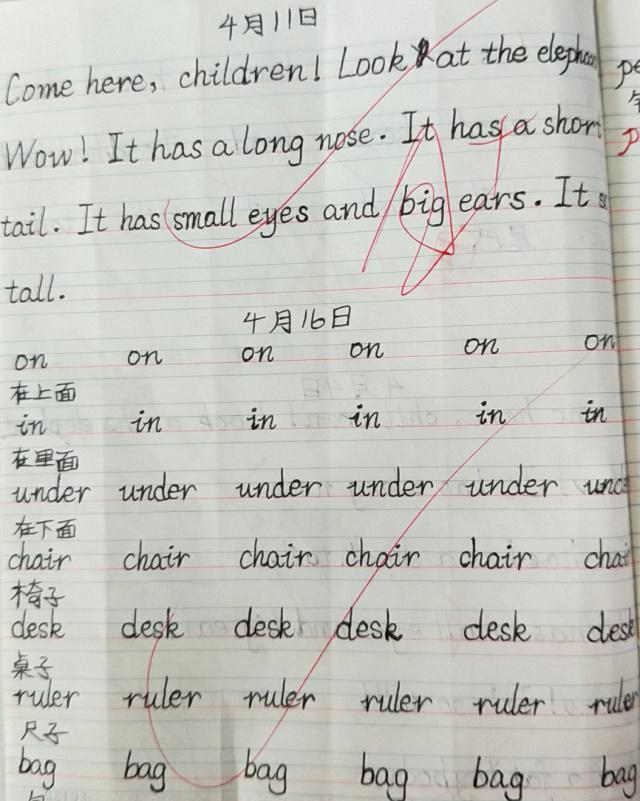 4月11日
Come here, children! Look at the
Wow! It has a long nose. It has a short
tail. It has small eyes and big ears. It
tall.
4月16日
on on on on on on
在上面
in in in in in in
在里面
under under under under under
在下面
chair chair chair chair chair
椅子
desk desk desk desk desk desk
桌子
ruler ruler ruler ruler ruler ruler
尺子
bag bag bag bag bag bag